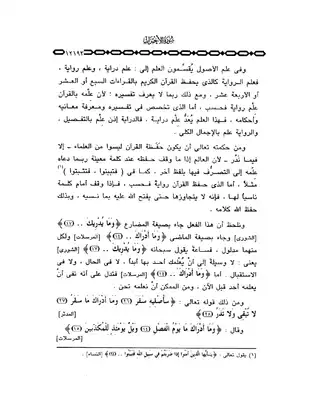 سُورَةُ الأَحْزَابِ
١٢١٩٣
وفى علم الأصول يُقسِّمون العلم إلى : علم دراية ، وعلم رواية ،
فعلم الرواية كالذى يحفظ القرآن الكريم بالقراءات السبع أو العشر
أو الأربعة عشر ، ومع ذلك ربما لا يعرف تفسيره ؛ لأن علْمه بالقرآن
رواية فحسب ، أما الذى تخصص فى تفسيره ومعرفة معانيه
وأحكامه ، فهذا العلم يُعدُّ علم دراية . فالدراية إذن علْم بالتفصيل ،
والرواية علم بالإجمال الكلى .
ومن حكمته تعالى أن يكون حفظة القرآن ليسوا من العلماء – إلا
فيما ندر – لأن العالم إذا ما وقف حفظه عند كلمة معينة ربما دعاه
علمه إلى التصرُّف فيها بلفظ آخر ، كما فى ( فتبينوا ، فتثبتوا )(١)
مثلاً ، أما الذى حفظ القرآن رواية فحسب ، فإذا وقف أمام كلمة
ناسياً لها ، فإنه لا يتجاوزها حتى يفتح الله عليه بما نسيه ، وبذلك
حفظ الله كلامه .
ونلحظ أن هذا الفعل جاء بصيغة المضارع ﴿ وَمَا يُدْرِيكَ .. (١٧) ﴾
[الشورى] وجاء بصيغة الماضى ﴿ وَمَا أَدْرَاكَ .. (١٤) ﴾ [المرسلات] ولكل
منهما مدلول ، فساعة يقول سبحانه ﴿ وَمَا يُدْرِيكَ .. (١٧) ﴾ [الشورى]
يعنى : لا وسيلة إلى أنْ يُعلمك أحد بها أبداً ، لا فى الحال ، ولا فى
الاستقبال . أما ﴿ وَمَا أَدْرَاكَ .. (١٤) ﴾ [المرسلات] فتدل على أنه نفى أنْ
يعلمه أحد قبل الآن ، ومن الممكن أنْ نعلمه نحن .
ومن ذلك قوله تعالى : ﴿ سَأُصْلِيهِ سَقَرَ (٢٦) وَمَا أَدْرَاكَ مَا سَقَرُ (٢٧)
لا تُبْقِى وَلا تَذَرُ (٢٨) ﴾ [المدثر]
وقال : ﴿ وَمَا أَدْرَاكَ مَا يَوْمُ الْفَصْلِ (١٤) وَيْلٌ يَوْمَئِذٍ لِّلْمُكَذِّبِينَ (١٥) ﴾
[المرسلات]
(١) يقول تعالى : ﴿ يَا أَيُّهَا الَّذِينَ آمَنُوا إِذَا ضَرَبْتُمْ فِى سَبِيلِ اللهِ فَتَبَيَّنُوا .. (٩٤) ﴾ [النساء] .